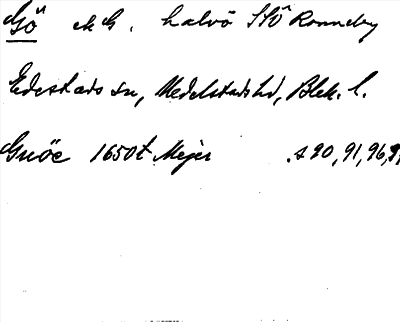 Gö ck G. halvö SSÖ Ronneby
Edestads sn, Medelstads hd, Blek. l.
Guöe 1650t Mejer s 90, 91, 96, 9